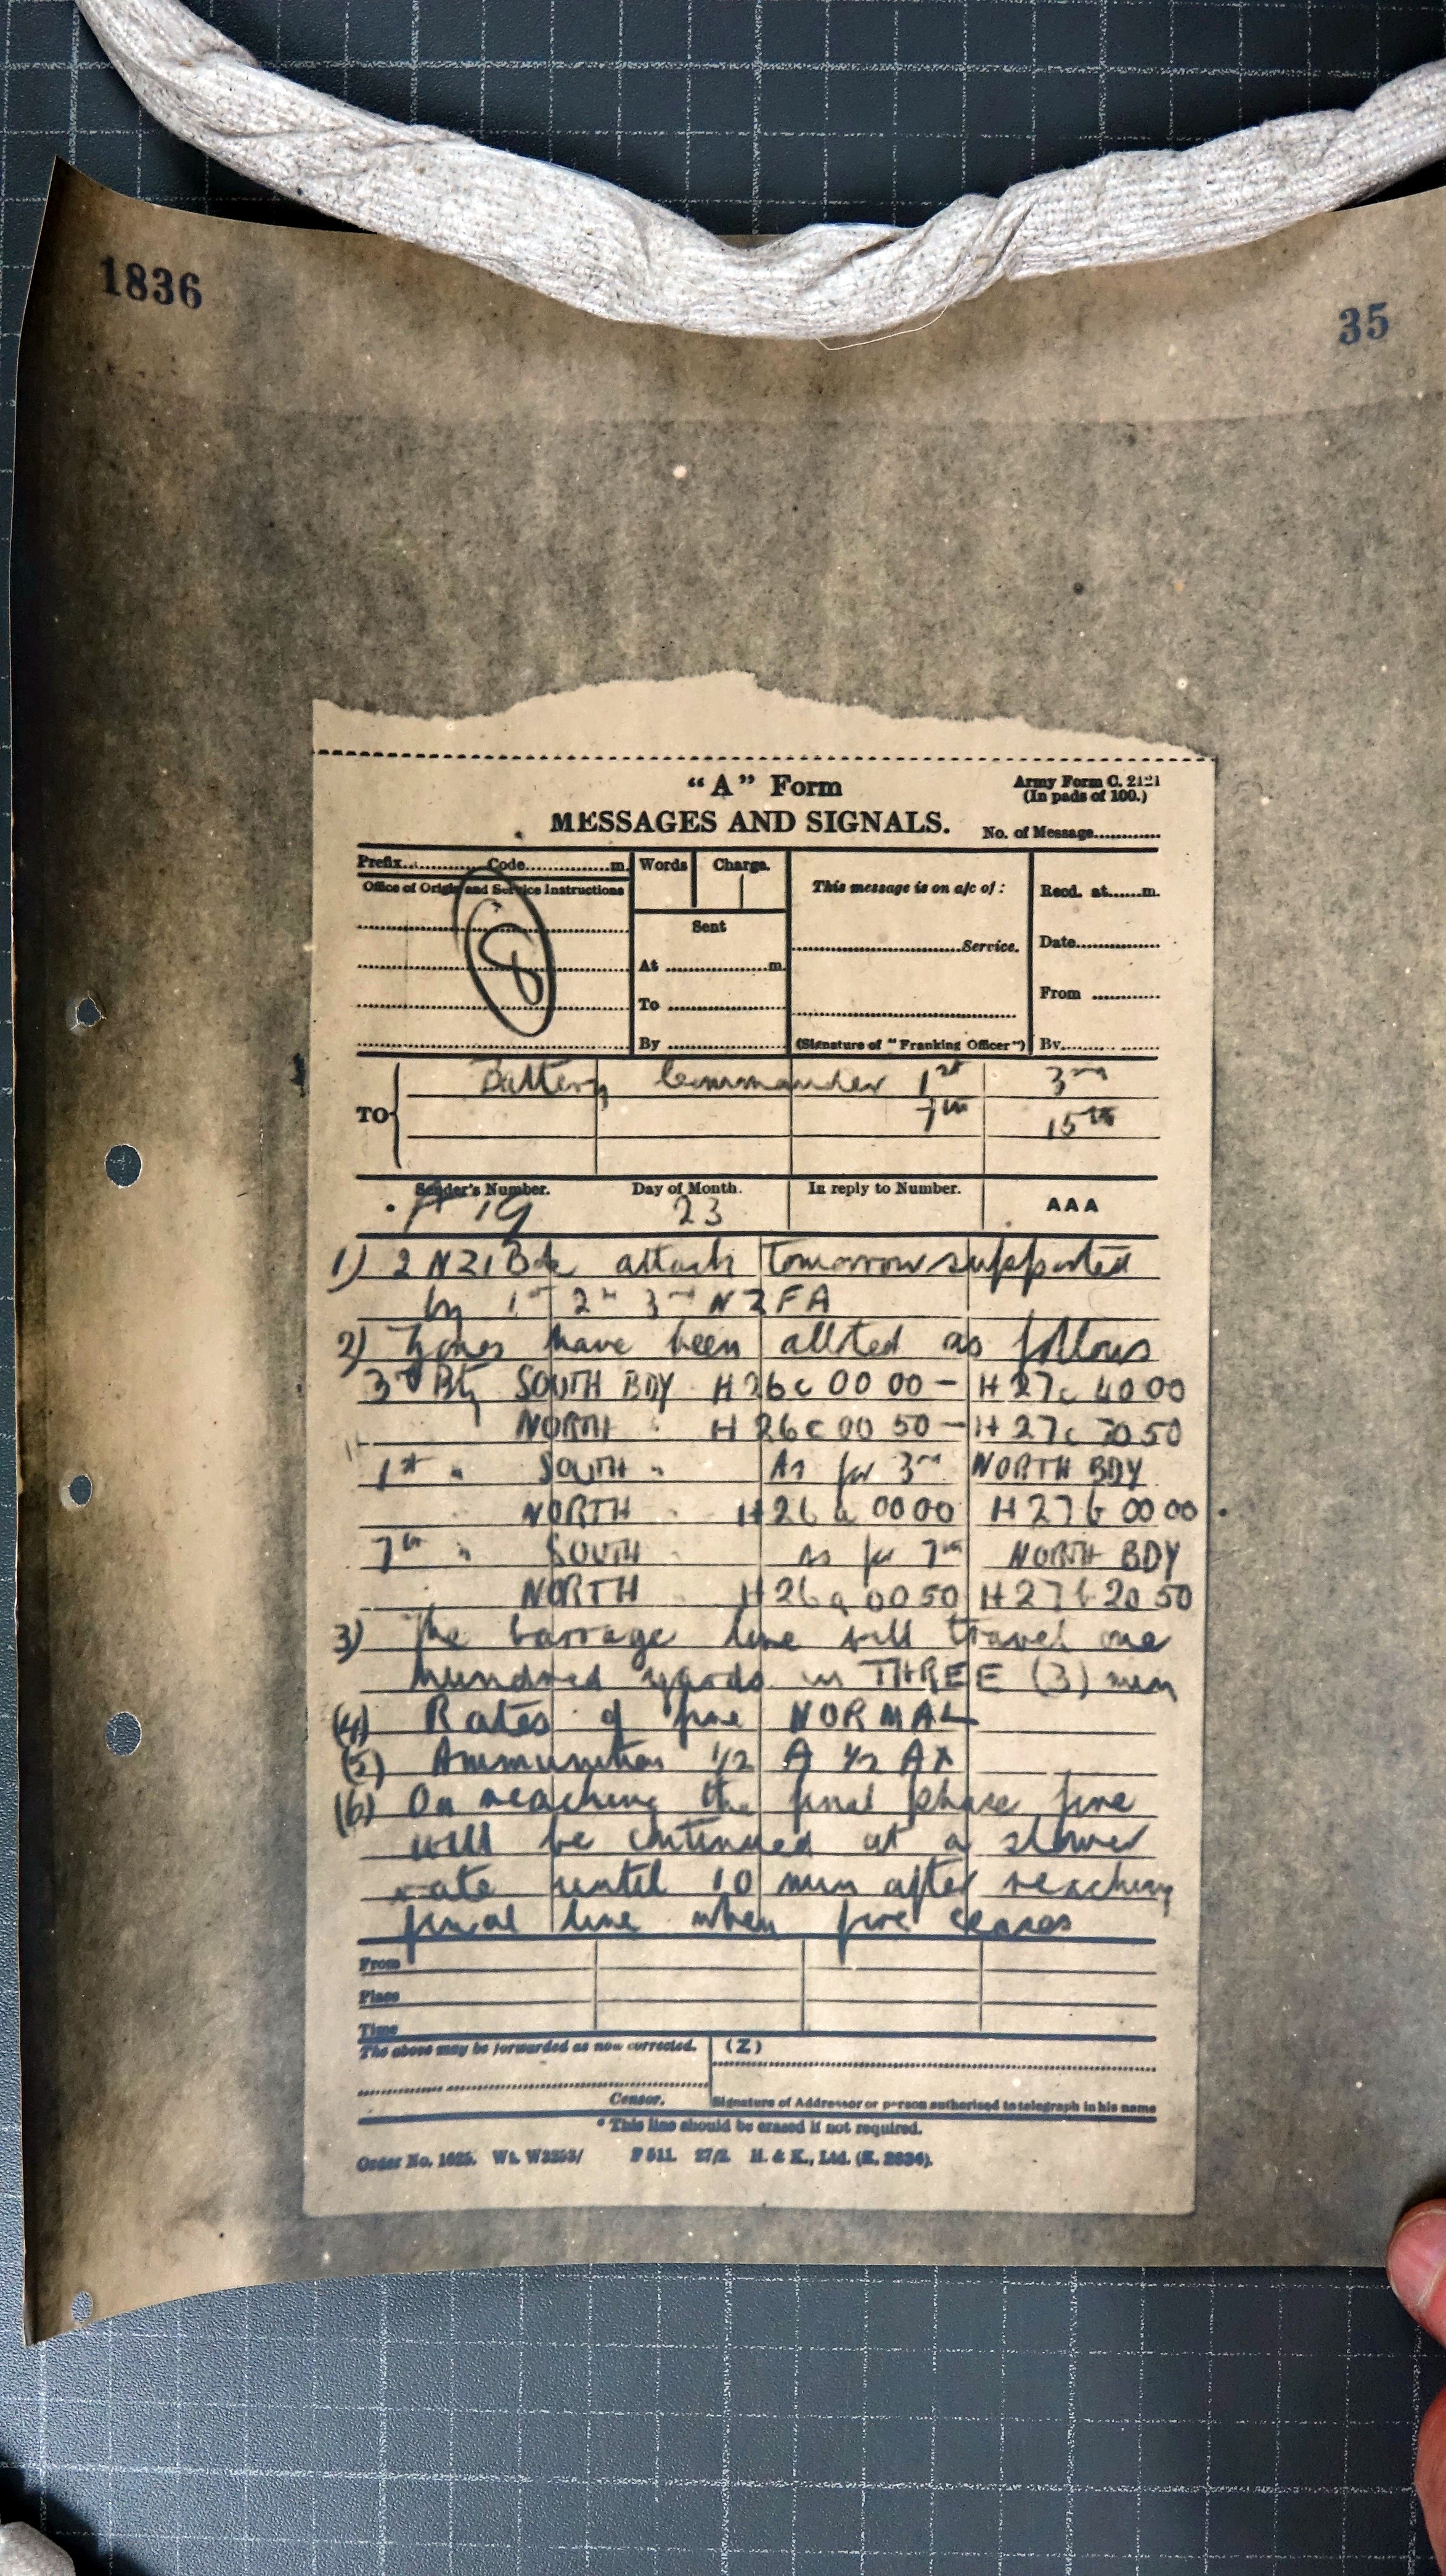 1836
35
"A" Form
Army Form C. 2121
(In pads of 100.)
MESSAGES AND SIGNALS.
No. of Message............
Prefix............Code..............m.
Words
Charge.
This message is on a/c of :
Recd. at.......m.
Office of Origin and Service Instructions
8
Sent
.........................Service.
Date...............
At ..................m.
From ............
To .....................
By .....................
(Signature of "Franking Officer")
By....................
TO
Battery Commander 1st 3rd
7th 15th
Sender's Number.
Day of Month.
In reply to Number.
AAA
19
23
1) 2 NZI Bde attack tomorrow supported
by 1st 2nd 3rd NZFA
2) Zones have been allted as follows
3rd Bty SOUTH BDY H26c 00 00 - H27c 40 00
NORTH " H26c 00 50 - H27c 50
1st " SOUTH " As for 3rd NORTH BDY
NORTH " H26a 00 00 H27b 00 00
7th " SOUTH " As for 7th NORTH BDY
" NORTH H26a 00 50 H27b 20 50
3) The barrage line will travel one
hundred yards in THREE (3) min
(4) Rates of fire NORMAL
(5) Ammunition 1/2 A 1/2 AX
(6) On reaching the final phase fire
will be continued at a slower
rate until 10 min after reaching
final line when fire ceases
From
Place
Time
The above may be forwarded as now corrected.
(Z)
Censor.
Signature of Addressor or person authorised to telegraph in his name
* This line should be erased if not required.
Order No. 1625. Wt. W3253/ P 511. 27/2. H. & K., Ltd. (E. 2634).